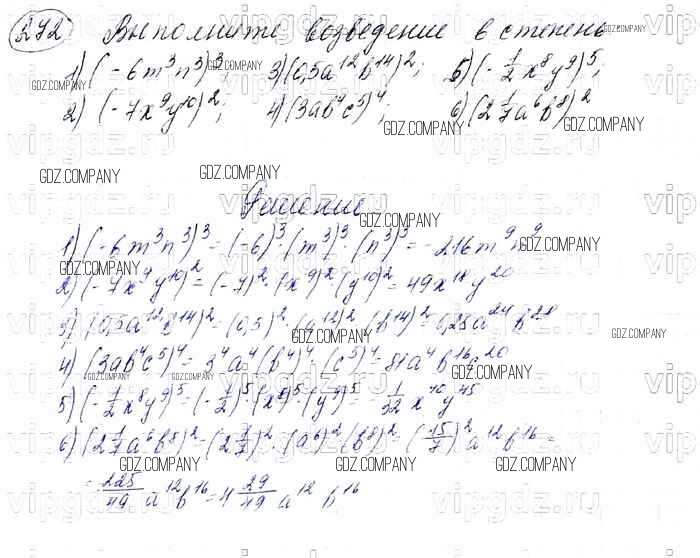 272 Выполните возведение в степень
1) (-6m³n³)³; 3) (0,5a¹²b¹⁴)²; 5) (-1/2x⁸y⁹)⁵;
2) (-7x⁹y¹⁰)²; 4) (3ab⁴c⁵)⁴; 6) (2 1/7a⁶b⁸)²
GDZ.COMPANY
Решение
1) (-6m³n³)³ = (-6)³·(m³)³·(n³)³ = -216m⁹n⁹
2) (-7x⁹y¹⁰)² = (-7)²·(x⁹)²(y¹⁰)² = 49x¹⁸y²⁰
3) (0,5a¹²b¹⁴)² = (0,5)²·(a¹²)²·(b¹⁴)² = 0,25a²⁴b²⁸
4) (3ab⁴c⁵)⁴ = 3⁴a⁴(b⁴)⁴·(c⁵)⁴ = 81a⁴b¹⁶c²⁰
5) (-1/2x⁸y⁹)⁵ = (-1/2)⁵·(x⁸)⁵(y⁹)⁵ = -1/32x⁴⁰y⁴⁵
6) (2 1/7a⁶b⁸)² = (2 1/7)²·(a⁶)²(b⁸)² = (15/7)²a¹²b¹⁶ =
= 225/49a¹²b¹⁶ = 4 29/49a¹²b¹⁶
vipgdz.ru